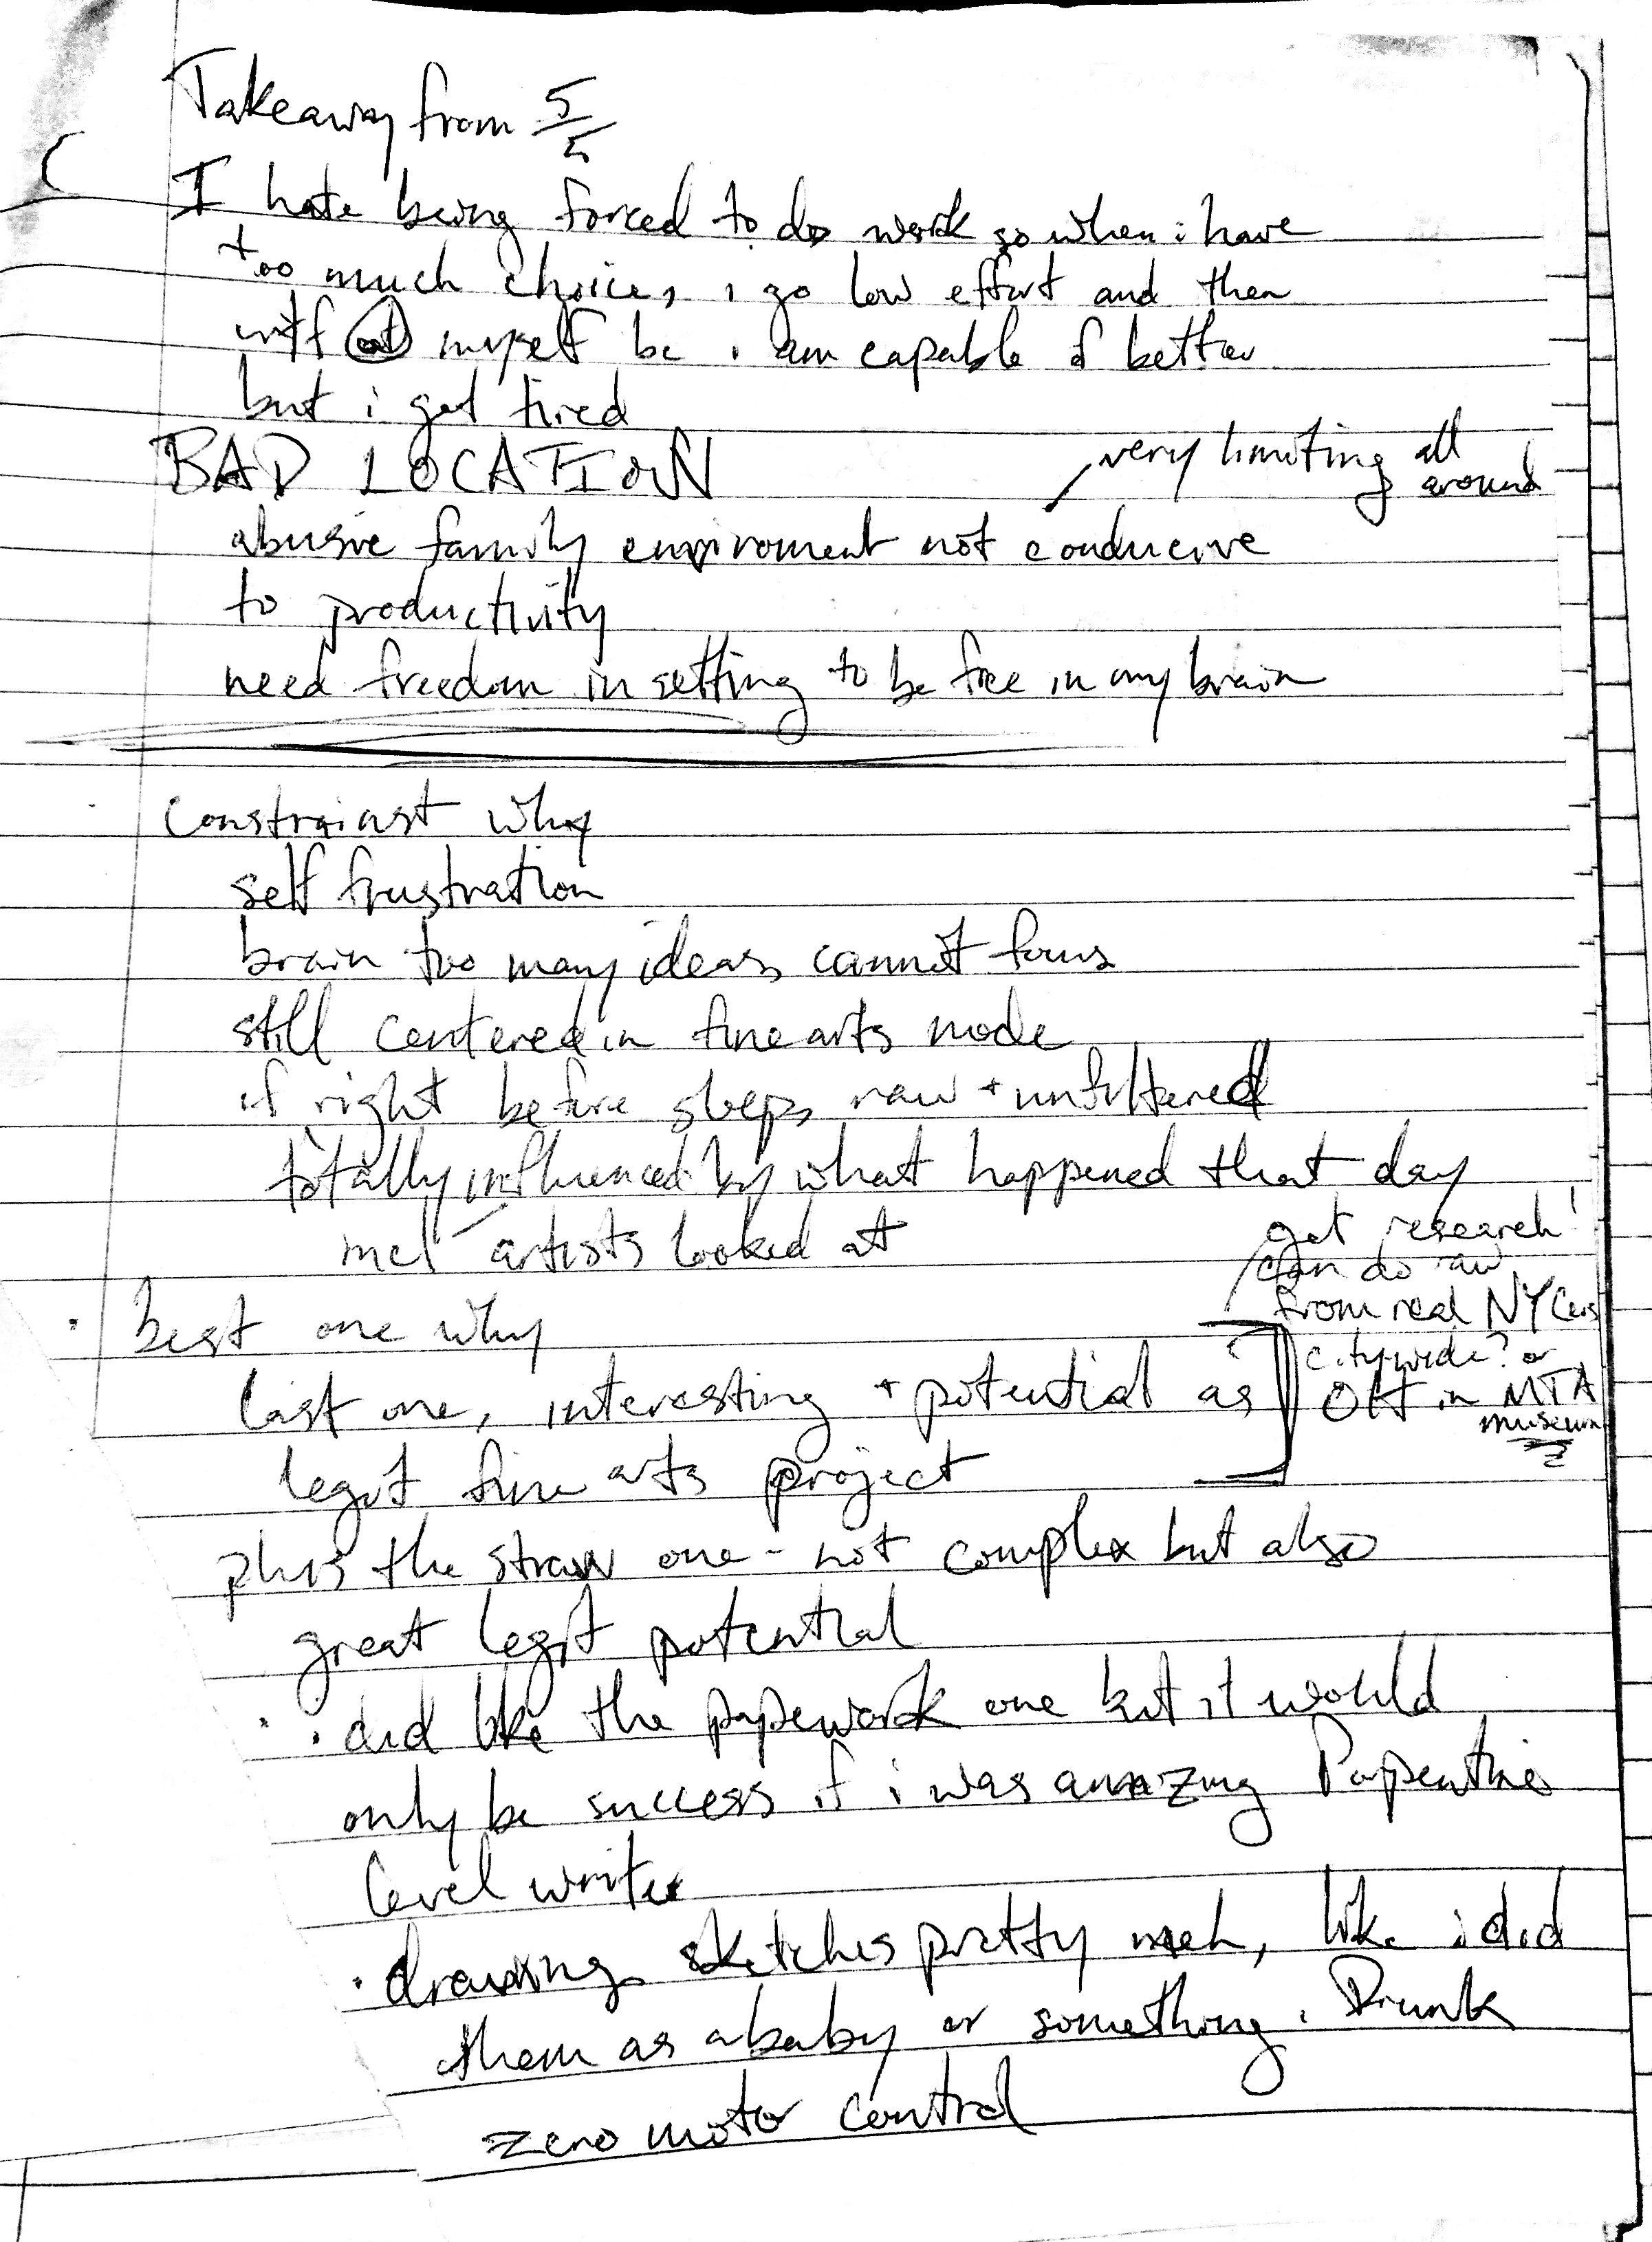 Takeaway from 5/5
I hate being forced to do work so when i have
too much choice, i go low effort and then
wtf at myself bc i am capable of better
but i get tired
BAD LOCATION
very limiting all
around
abusive family enviroment not conducive
to productivity
need freedom in setting to be free in my brain
constrainst why
self frustration
brain too many ideas, cannot focus
still centered in fine arts mode
if right before sleep, raw + unfiltered
totally influenced by what happened that day
incl artists looked at
best one why
get research!
can do
from real NYCers
citywide? or
OH in MTA
museum
last one, interesting + potential as
legit fine arts project
plus the straw one - not complex but also
great legit potential
· did like the papework one but it would
only be success if i was amazing
level writer
· drawing sketches pretty meh, like i did
them as a baby or something. Drunk
zero motor control